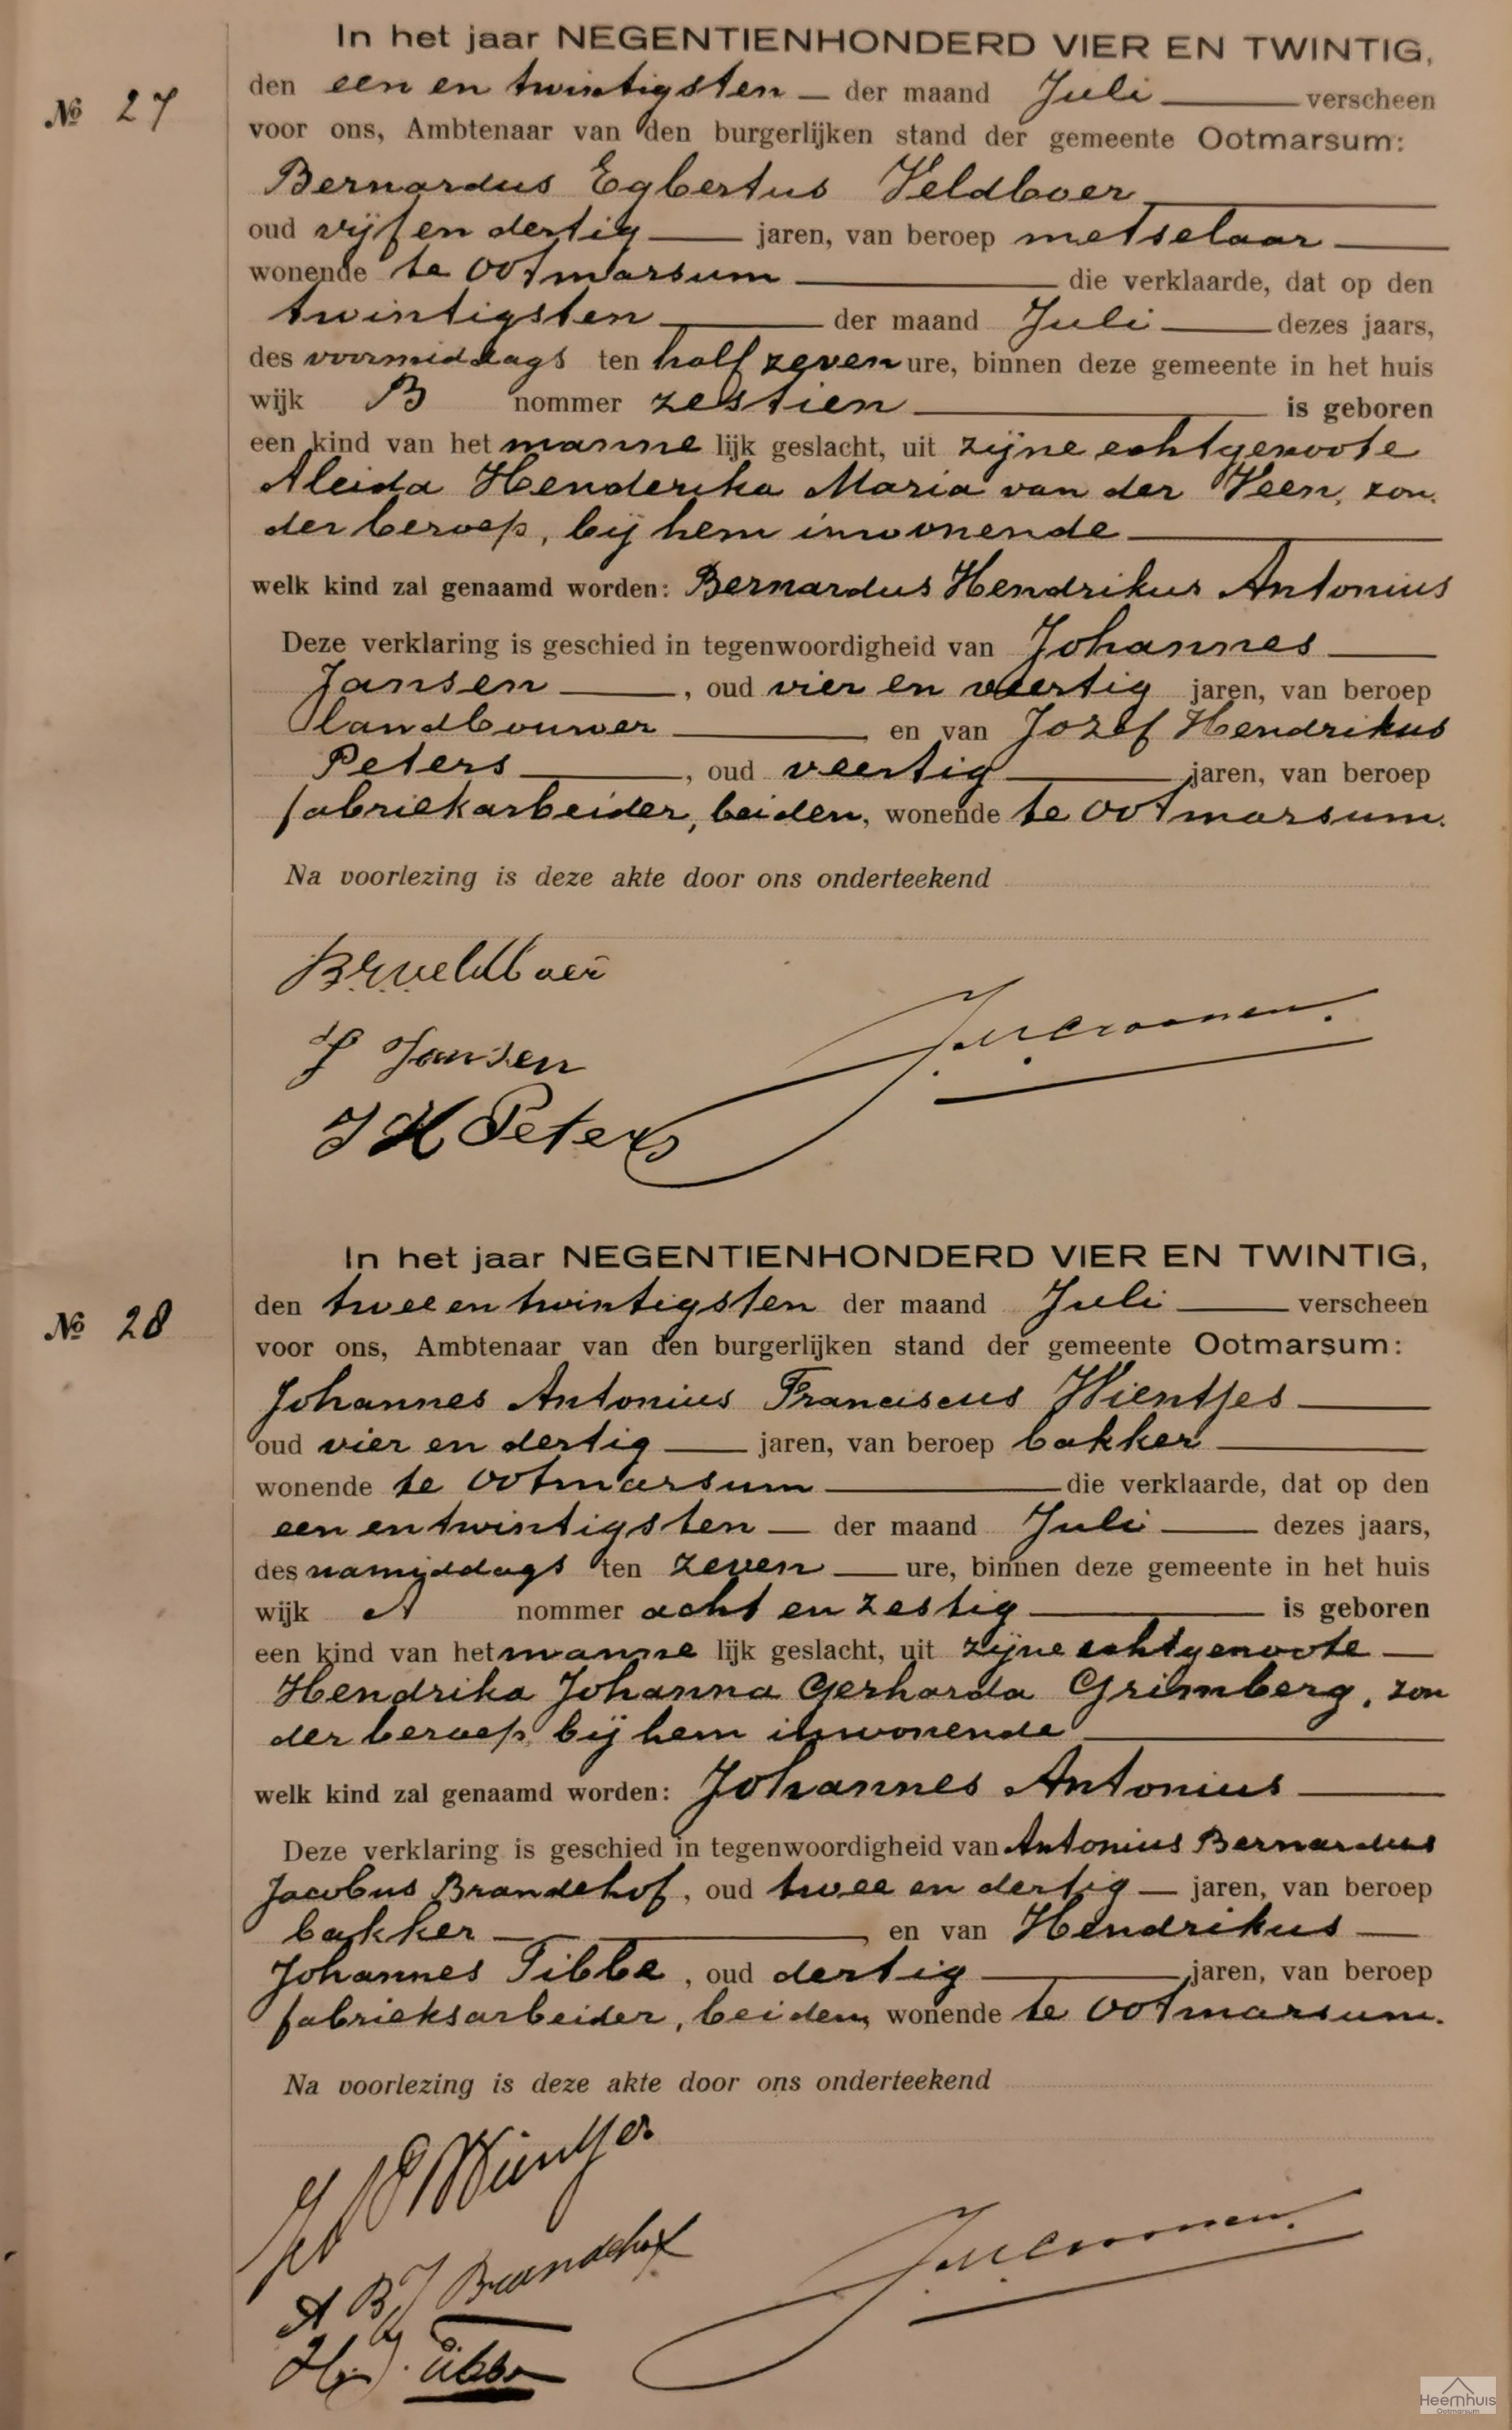 In het jaar NEGENTIENHONDERD VIER EN TWINTIG,
№ 27
den een en twintigsten — der maand Juli — verscheen
voor ons, Ambtenaar van den burgerlijken stand der gemeente Ootmarsum:
Bernardus Egbertus Veldboer
oud vijf en dertig — jaren, van beroep metselaar —
wonende te Ootmarsum — die verklaarde, dat op den
twintigsten — der maand Juli — dezes jaars,
des voormiddags ten half zeven ure, binnen deze gemeente in het huis
wijk B nommer zestien — is geboren
een kind van het manne lijk geslacht, uit zijne echtgenoote
Aleida Henderika Maria van der Veen, zon
der beroep, bij hem inwonende —
welk kind zal genaamd worden: Bernardus Hendrikus Antonius
Deze verklaring is geschied in tegenwoordigheid van Johannes —
Jansen —, oud vier en veertig jaren, van beroep
landbouwer —, en van Jozef Hendrikus
Peters —, oud veertig — jaren, van beroep
fabriekarbeider, beiden, wonende te Ootmarsum.
Na voorlezing is deze akte door ons onderteekend
BEVeldboer
J Jansen
J H Peters
In het jaar NEGENTIENHONDERD VIER EN TWINTIG,
№ 28
den twee en twintigsten der maand Juli — verscheen
voor ons, Ambtenaar van den burgerlijken stand der gemeente Ootmarsum:
Johannes Antonius Franciscus Wientjes —
oud vier en dertig — jaren, van beroep bakker —
wonende te Ootmarsum — die verklaarde, dat op den
een en twintigsten — der maand Juli — dezes jaars,
des namiddags ten zeven — ure, binnen deze gemeente in het huis
wijk A nommer acht en zestig — is geboren
een kind van het manne lijk geslacht, uit zijne echtgenoote —
Hendrika Johanna Gerharda Grimberg, zon
der beroep, bij hem inwonende —
welk kind zal genaamd worden: Johannes Antonius —
Deze verklaring is geschied in tegenwoordigheid van Antonius Bernardus
Jacobus Brandehof, oud twee en dertig — jaren, van beroep
bakker —, en van Hendrikus —
Johannes Tibbe, oud dertig — jaren, van beroep
fabrieksarbeider, beiden, wonende te Ootmarsum.
Na voorlezing is deze akte door ons onderteekend
Wientjes
A B J Brandehof
H. J. Tibbe
Heemhuis
Ootmarsum